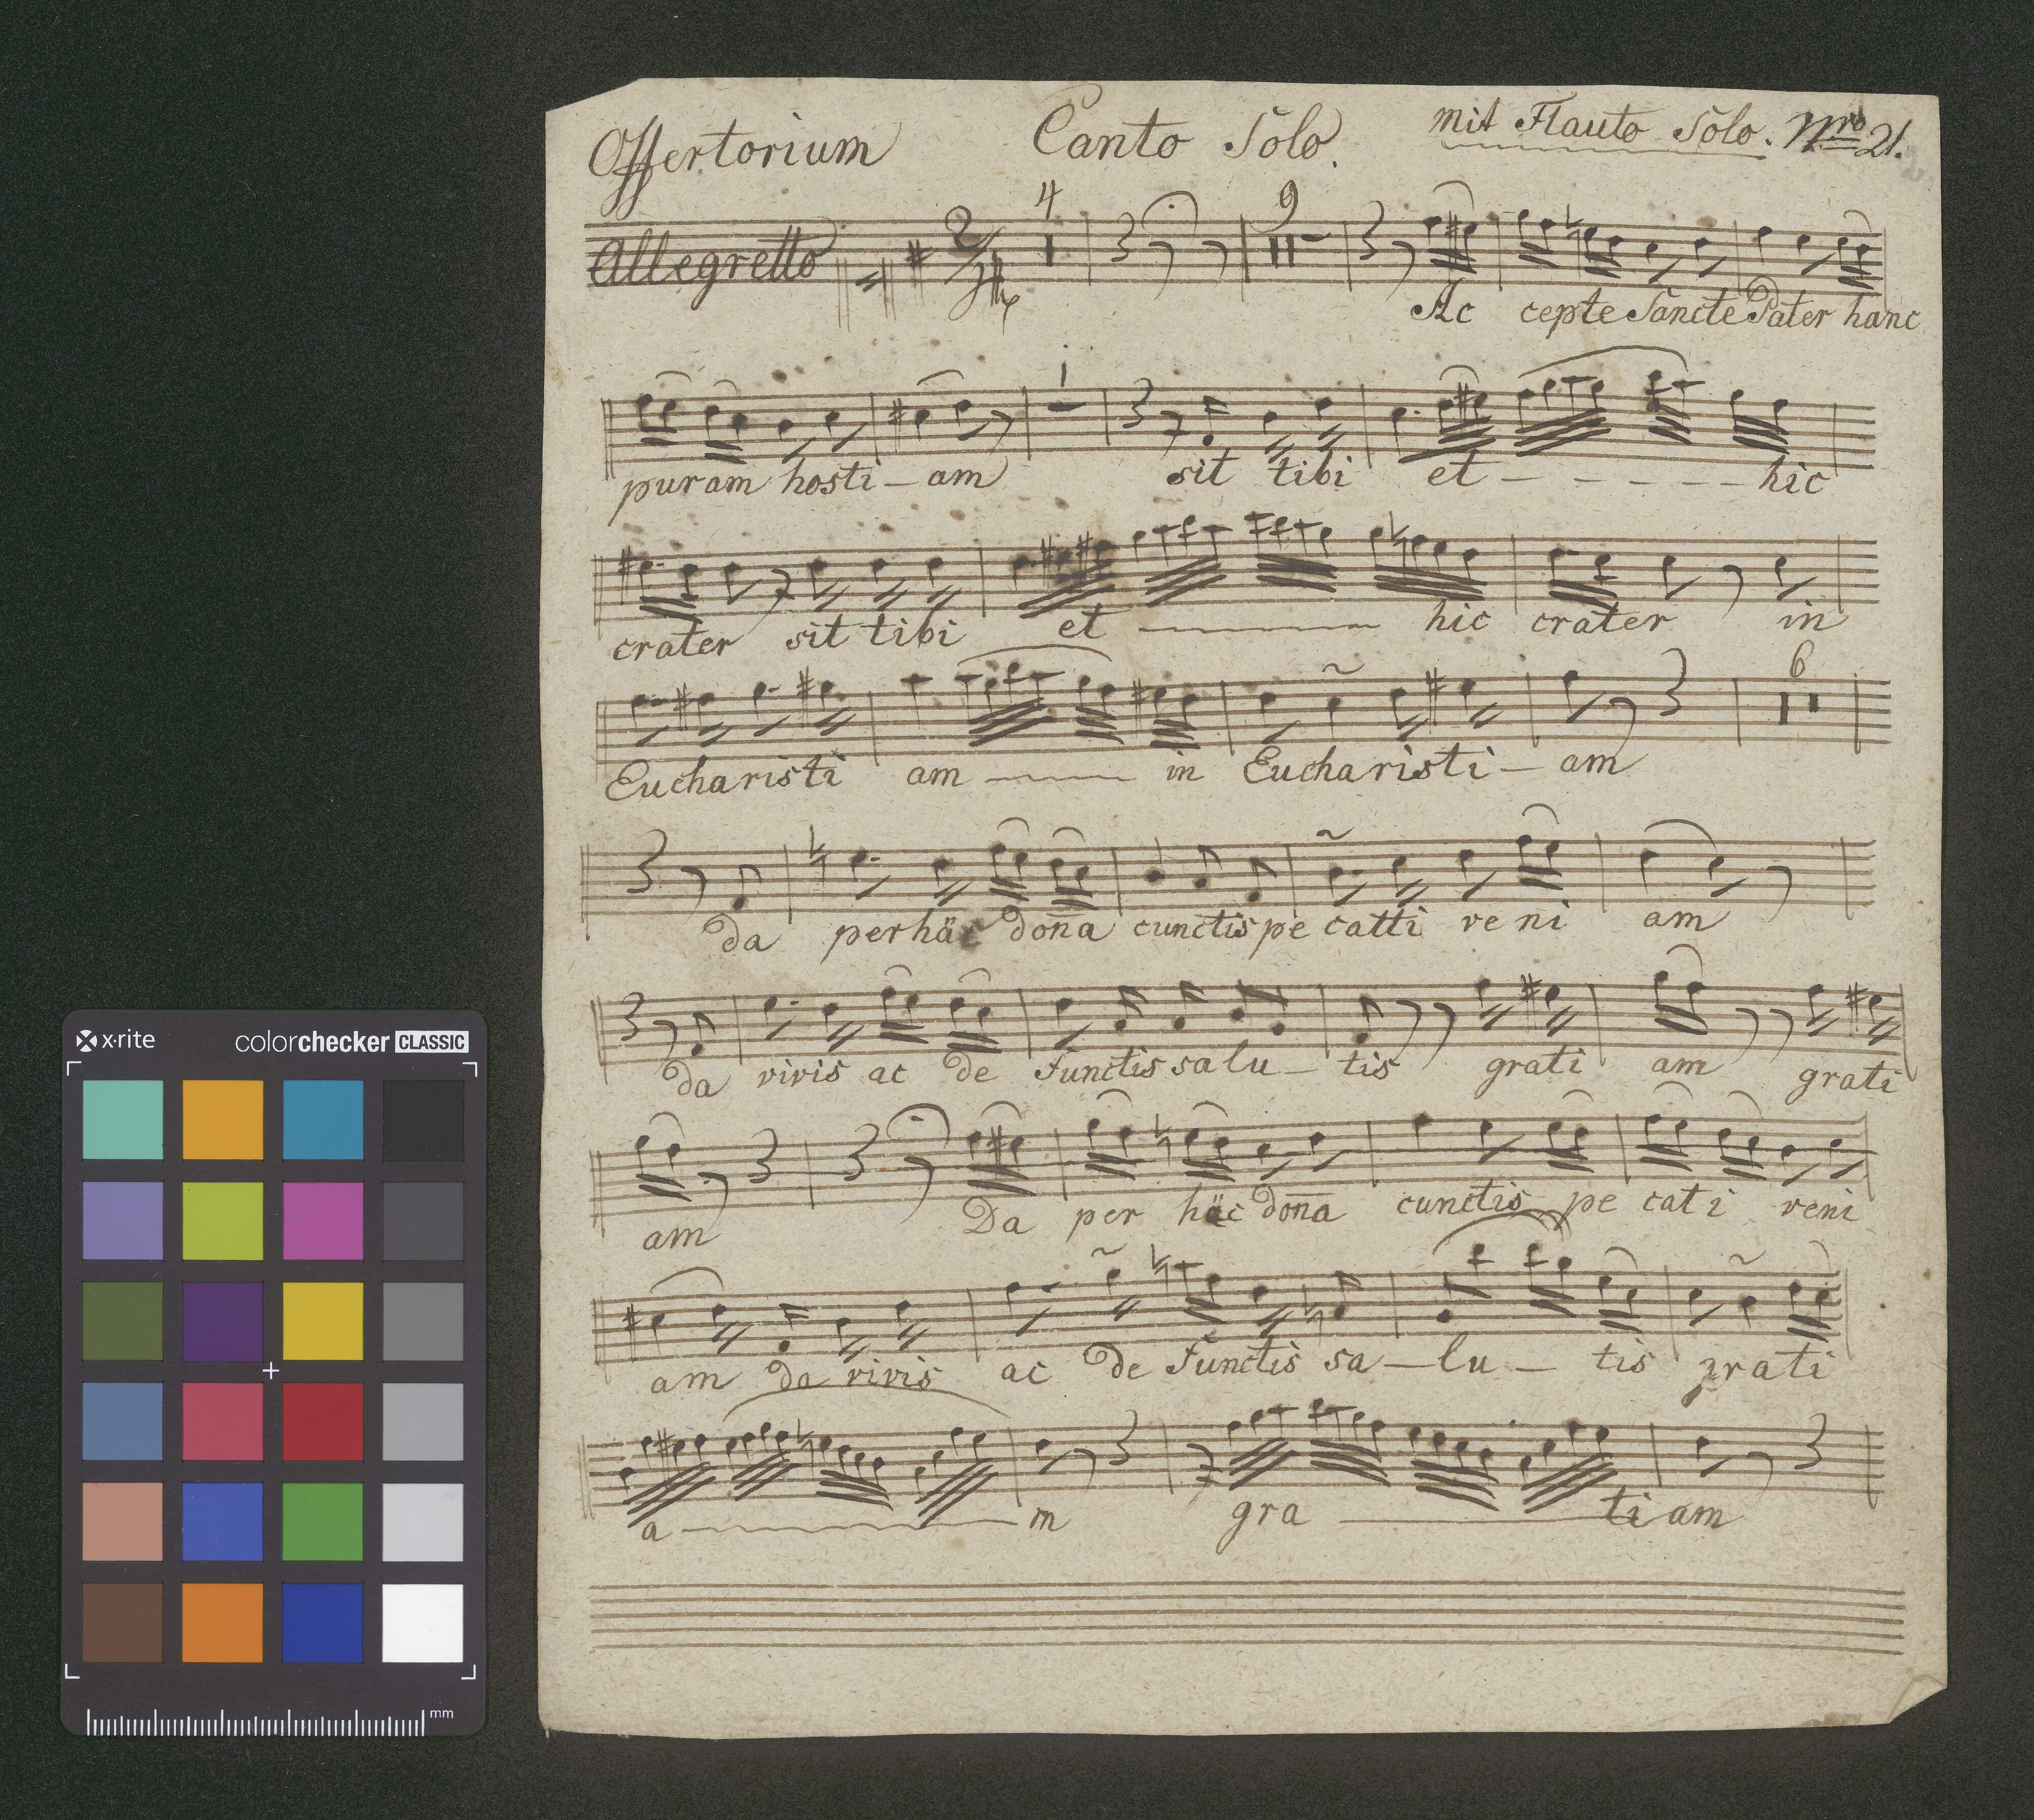 Offertorium Canto Solo. mit Flauto Solo. Nro 21.
4 9
Allegretto 2/4
Ac cepte Sancte Pater hanc
1
puram hosti – am sit tibi et – – – – – hic
crater sit tibi et hic crater in
6
Eucharisti am in Eucharisti – am
da per häc dona cunctis pe catti ve ni am
da vivis ac de functis salu – tis grati am grati
am Da per häc dona cunctis pe cati veni
am da vivis ac de functis sa – lu – tis grati
a m gra ti am
x·rite colorchecker CLASSIC
mm